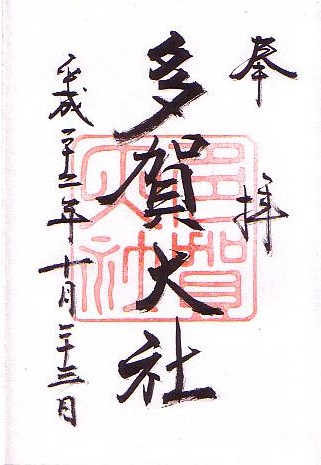 奉拝
多賀大社
平成二十二年十月二十三日